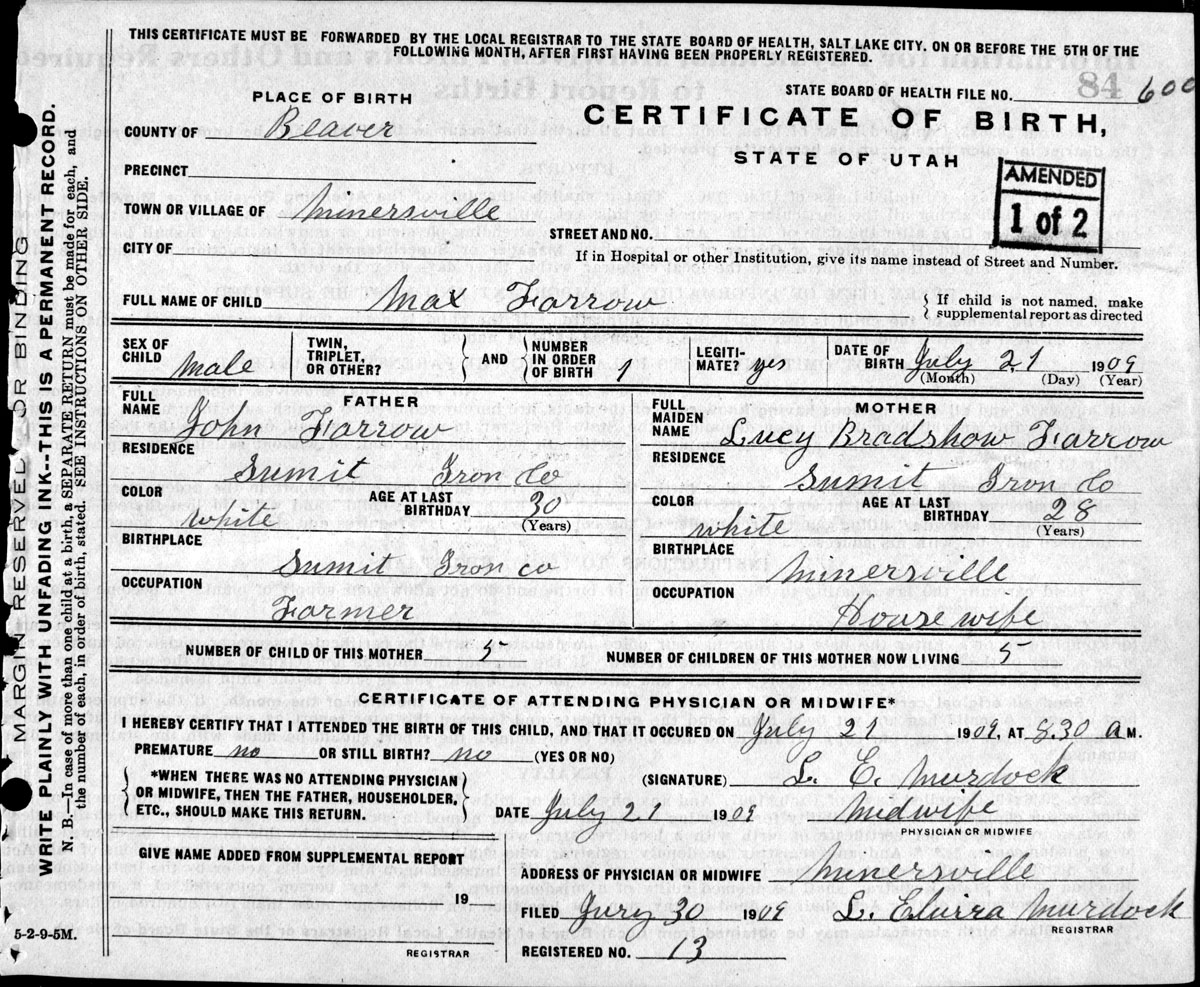 THIS CERTIFICATE MUST BE FORWARDED BY THE LOCAL REGISTRAR TO THE STATE BOARD OF HEALTH, SALT LAKE CITY. ON OR BEFORE THE 5TH OF THE
FOLLOWING MONTH. AFTER FIRST HAVING BEEN PROPERLY REGISTERED.
84
STATE BOARD OF HEALTH FILE NO. 600
PLACE OF BIRTH
CERTIFICATE OF BIRTH,
STATE OF UTAH
AMENDED
1 of 2
COUNTY OF Beaver
PRECINCT
TOWN OR VILLAGE OF Minersville
STREET AND NO.
CITY OF
If in Hospital or other Institution, give its name instead of Street and Number.
FULL NAME OF CHILD Max Farrow
If child is not named, make
supplemental report as directed
SEX OF CHILD Male
TWIN, TRIPLET, OR OTHER?
AND
NUMBER IN ORDER OF BIRTH 1
LEGITIMATE? yes
DATE OF BIRTH July 21 1909
(Month) (Day) (Year)
FATHER
FULL NAME John Farrow
RESIDENCE
Sumit Iron Co
COLOR white
AGE AT LAST BIRTHDAY 30
(Years)
BIRTHPLACE
Sumit Iron co
OCCUPATION
Farmer
MOTHER
FULL MAIDEN NAME Lucy Bradshow Farrow
RESIDENCE
Sumit Iron Co
COLOR white
AGE AT LAST BIRTHDAY 28
(Years)
BIRTHPLACE
Minersville
OCCUPATION
House wife
NUMBER OF CHILD OF THIS MOTHER 5
NUMBER OF CHILDREN OF THIS MOTHER NOW LIVING 5
CERTIFICATE OF ATTENDING PHYSICIAN OR MIDWIFE*
I HEREBY CERTIFY THAT I ATTENDED THE BIRTH OF THIS CHILD, AND THAT IT OCCURED ON July 21 1909, AT 8.30 a M.
PREMATURE no OR STILL BIRTH? no (YES OR NO)
*WHEN THERE WAS NO ATTENDING PHYSICIAN
OR MIDWIFE, THEN THE FATHER, HOUSEHOLDER,
ETC., SHOULD MAKE THIS RETURN.
(SIGNATURE) L. E. Murdock
DATE July 21 1909 Midwife
PHYSICIAN OR MIDWIFE
GIVE NAME ADDED FROM SUPPLEMENTAL REPORT
19
REGISTRAR
ADDRESS OF PHYSICIAN OR MIDWIFE Minersville
FILED 30 1909 L. Murdock
REGISTRAR
REGISTERED NO. 13
5-2-9-5M.
MARGIN RESERVED FOR BINDING
WRITE PLAINLY WITH UNFADING INK--THIS IS A PERMANENT RECORD.
N. B.—In case of more than one child at a birth, a SEPARATE RETURN must be made for each, and
the number of each, in order of birth, stated. SEE INSTRUCTIONS ON OTHER SIDE.